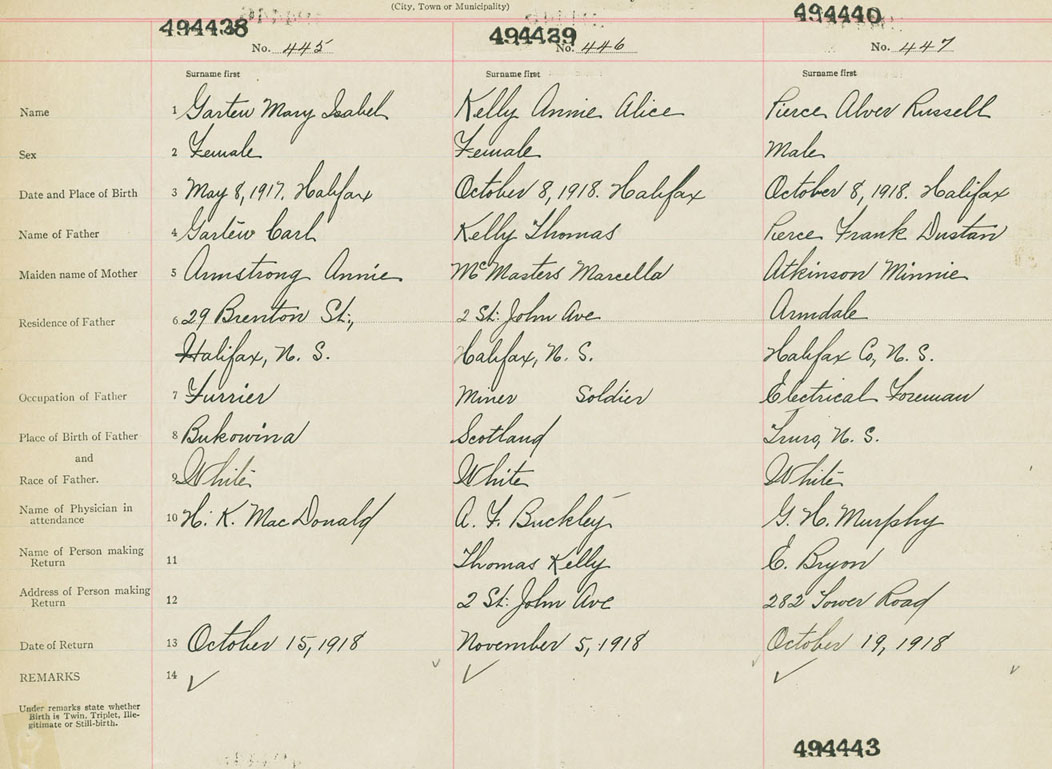 (City, Town or Municipality)
494438 494439 494440
No. 445 No. 446 No. 447
Surname first Surname first Surname first
Name 1 Garten Mary Isabel Kelly Annie Alice Pierce Alver Russell
Sex 2 Female Female Male
Date and Place of Birth 3 May 8, 1917. Halifax October 8, 1918. Halifax October 8, 1918. Halifax
Name of Father 4 Garten Carl Kelly Thomas Pierce Frank Dustan
Maiden name of Mother 5 Armstrong Annie McMasters Marcella Atkinson Minnie
Residence of Father 6 29 Brenton St., 2 St. John Ave Armdale
Halifax, N. S. Halifax, N. S. Halifax Co, N. S.
Occupation of Father 7 Furrier Miner Soldier Electrical Foreman
Place of Birth of Father 8 Bukowina Scotland Truro, N. S.
and
Race of Father. 9 White White White
Name of Physician in
attendance 10 H. K. MacDonald A. F. Buckley G. H. Murphy
Name of Person making
Return 11 Thomas Kelly E. Bryon
Address of Person making
Return 12 2 St. John Ave 282 Tower Road
Date of Return 13 October 15, 1918 November 5, 1918 October 19, 1918
REMARKS 14
Under remarks state whether
Birth is Twin, Triplet, Ille-
gitimate or Still-birth.
494443